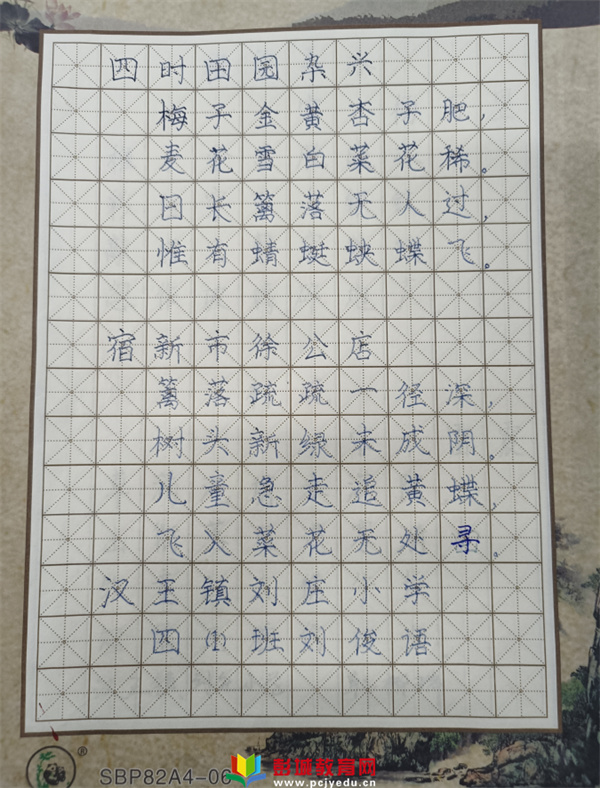 四时田园杂兴
梅子金黄杏子肥，
麦花雪白菜花稀。
日长篱落无人过，
惟有蜻蜓蛱蝶飞。
宿新市徐公店
篱落疏疏一径深，
树头新绿未成阴。
儿童急走追黄蝶，
飞入菜花无处寻。
汉王镇刘庄小学
四(1)班刘俊语
®
SBP82A4-06
彭城教育网
www.pcjyedu.cn